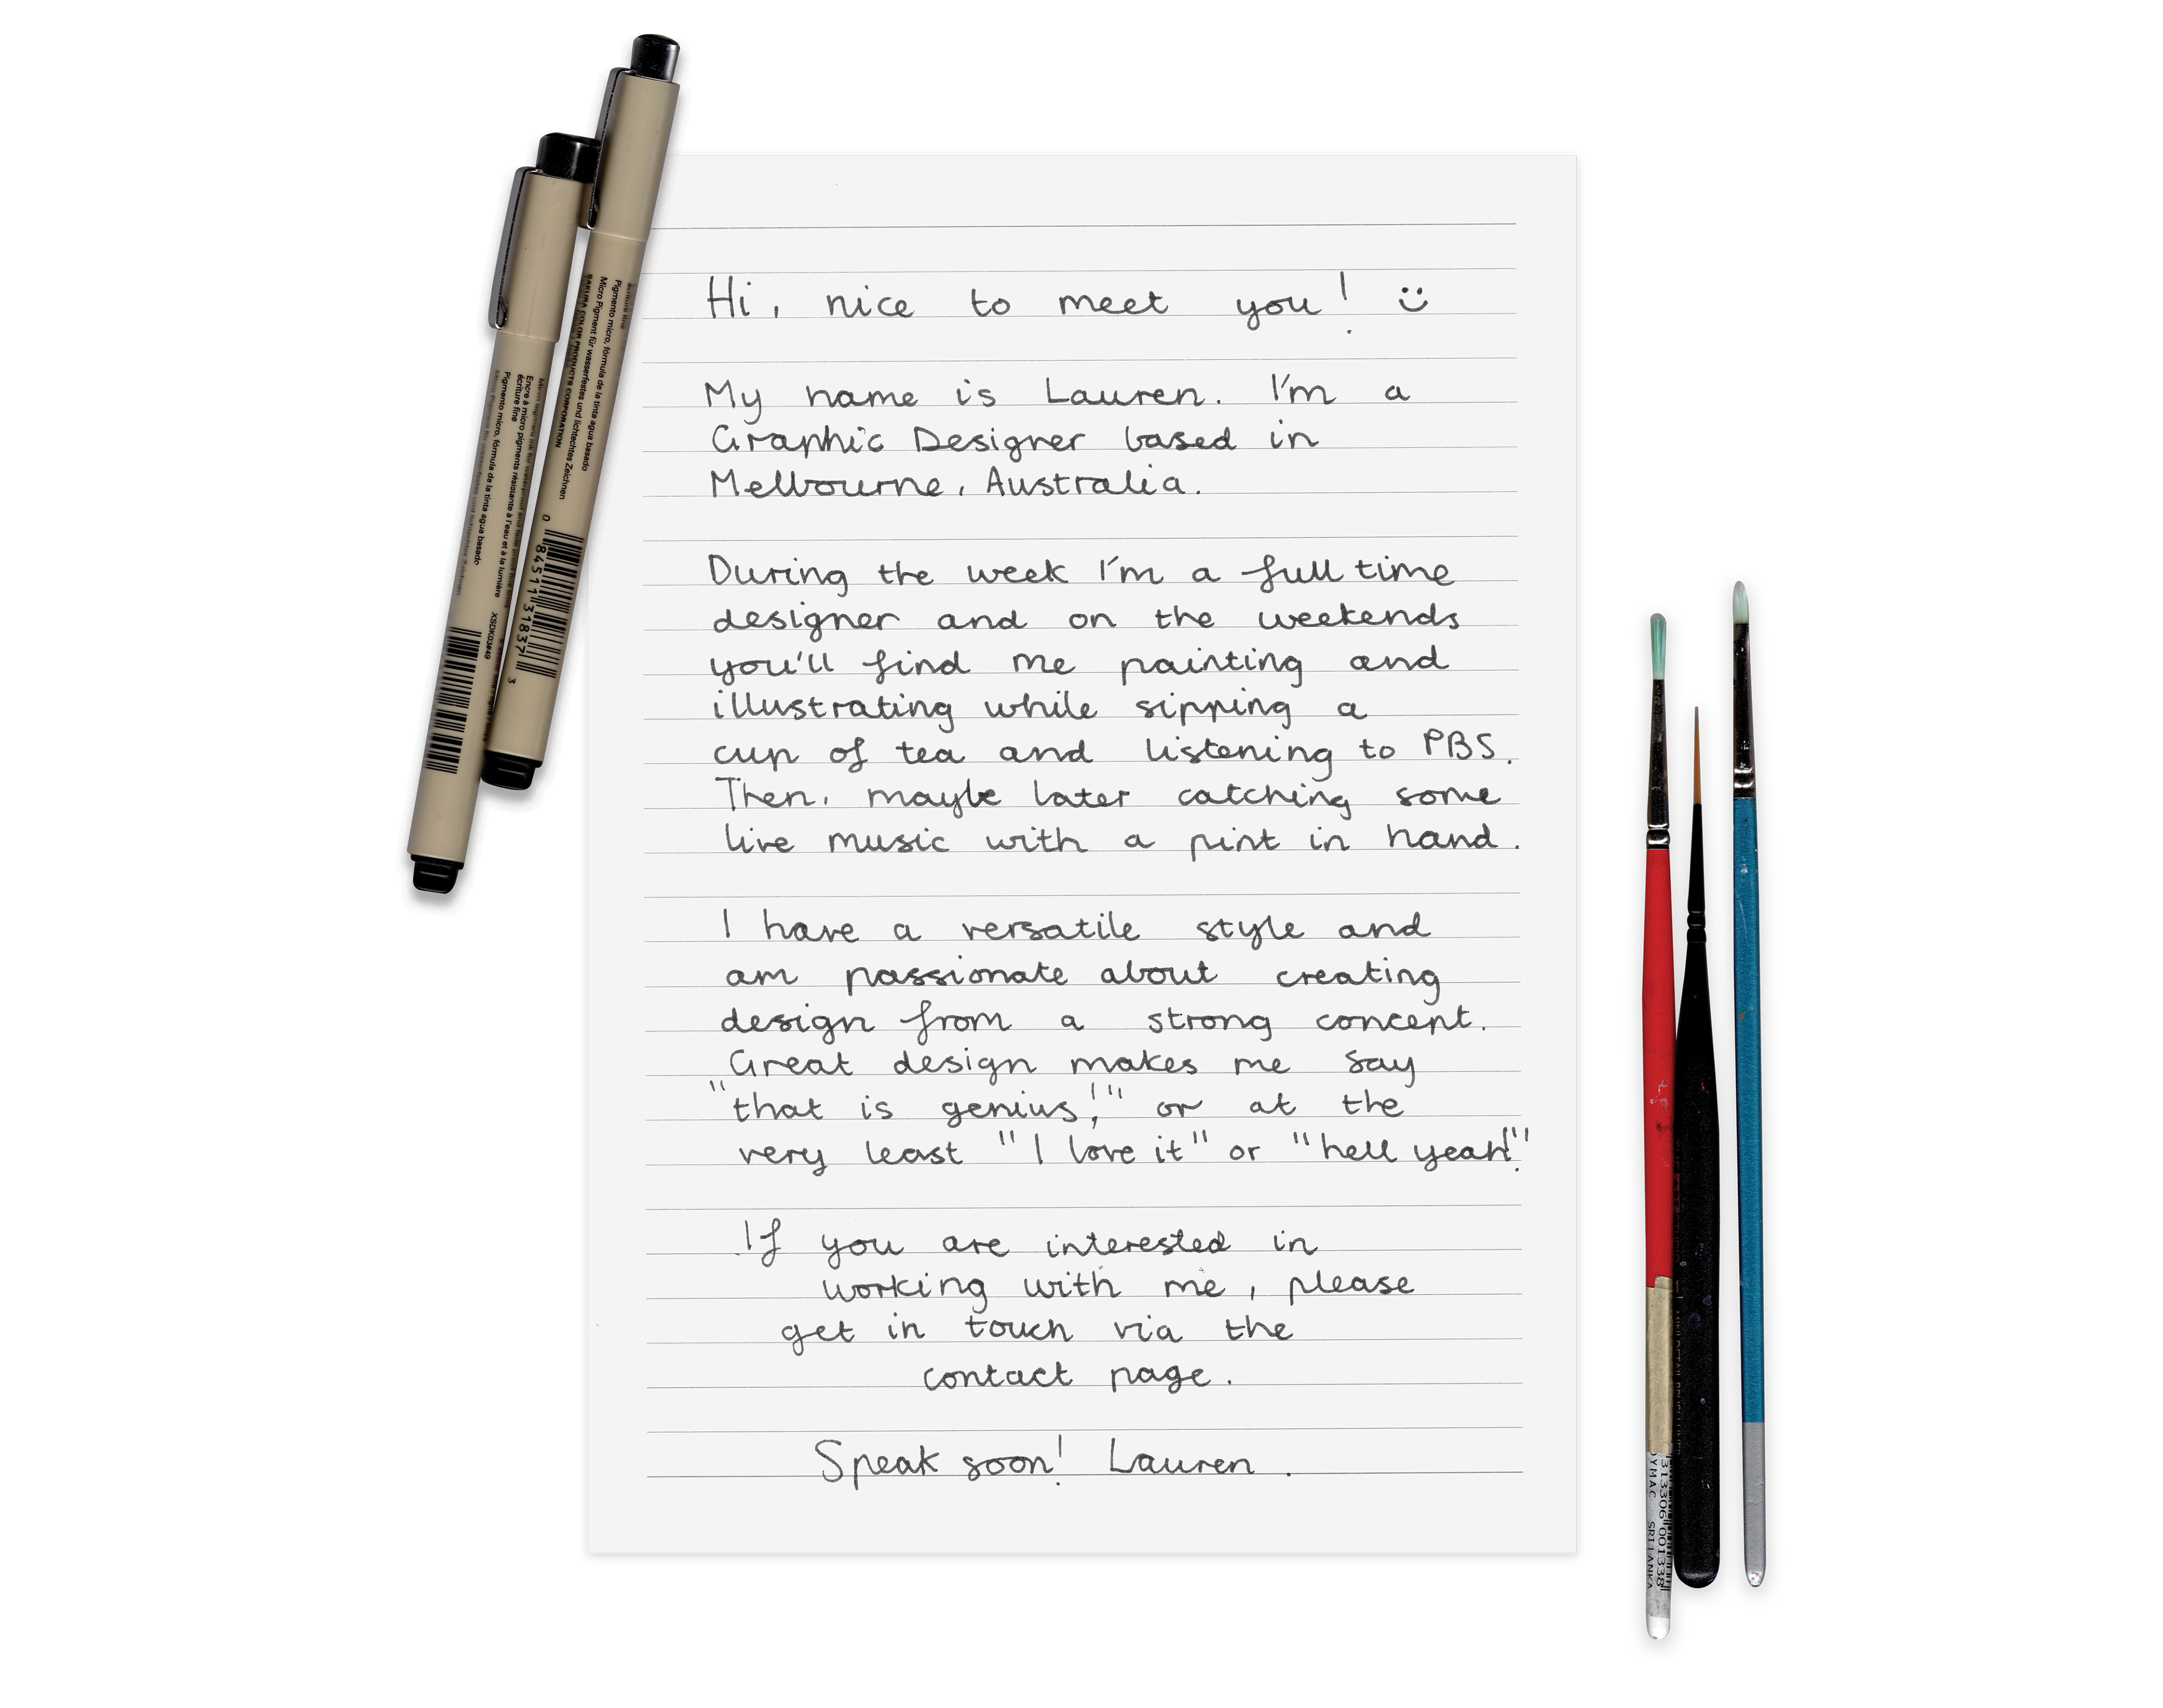 Hi, nice to meet you! :)
My name is Lauren. I'm a
Graphic Designer based in
Melbourne, Australia.
During the week I'm a full time
designer and on the weekends
you'll find me painting and
illustrating while sipping a
cup of tea and listening to PBS.
Then, maybe later catching some
live music with a pint in hand.
I have a versatile style and
am passionate about creating
design from a strong concept.
Great design makes me say
"that is genius!" or at the
very least "I love it" or "hell yeah!"
If you are interested in
working with me, please
get in touch via the
contact page.
Speak soon! Lauren.
Pigmento micro, fórmula de la tinta agua basado
Micro Pigment für wasserfestes und lichtechtes Zeichnen
SAKURA COLOR PRODUCTS CORPORATION
0 84511 31837 3
Encre à micro pigments résistante à l'eau et à la lumière
écriture fine
Pigmento micro, fórmula de la tinta agua basado
XSDK03#49
313306 001338
SRI LANKA